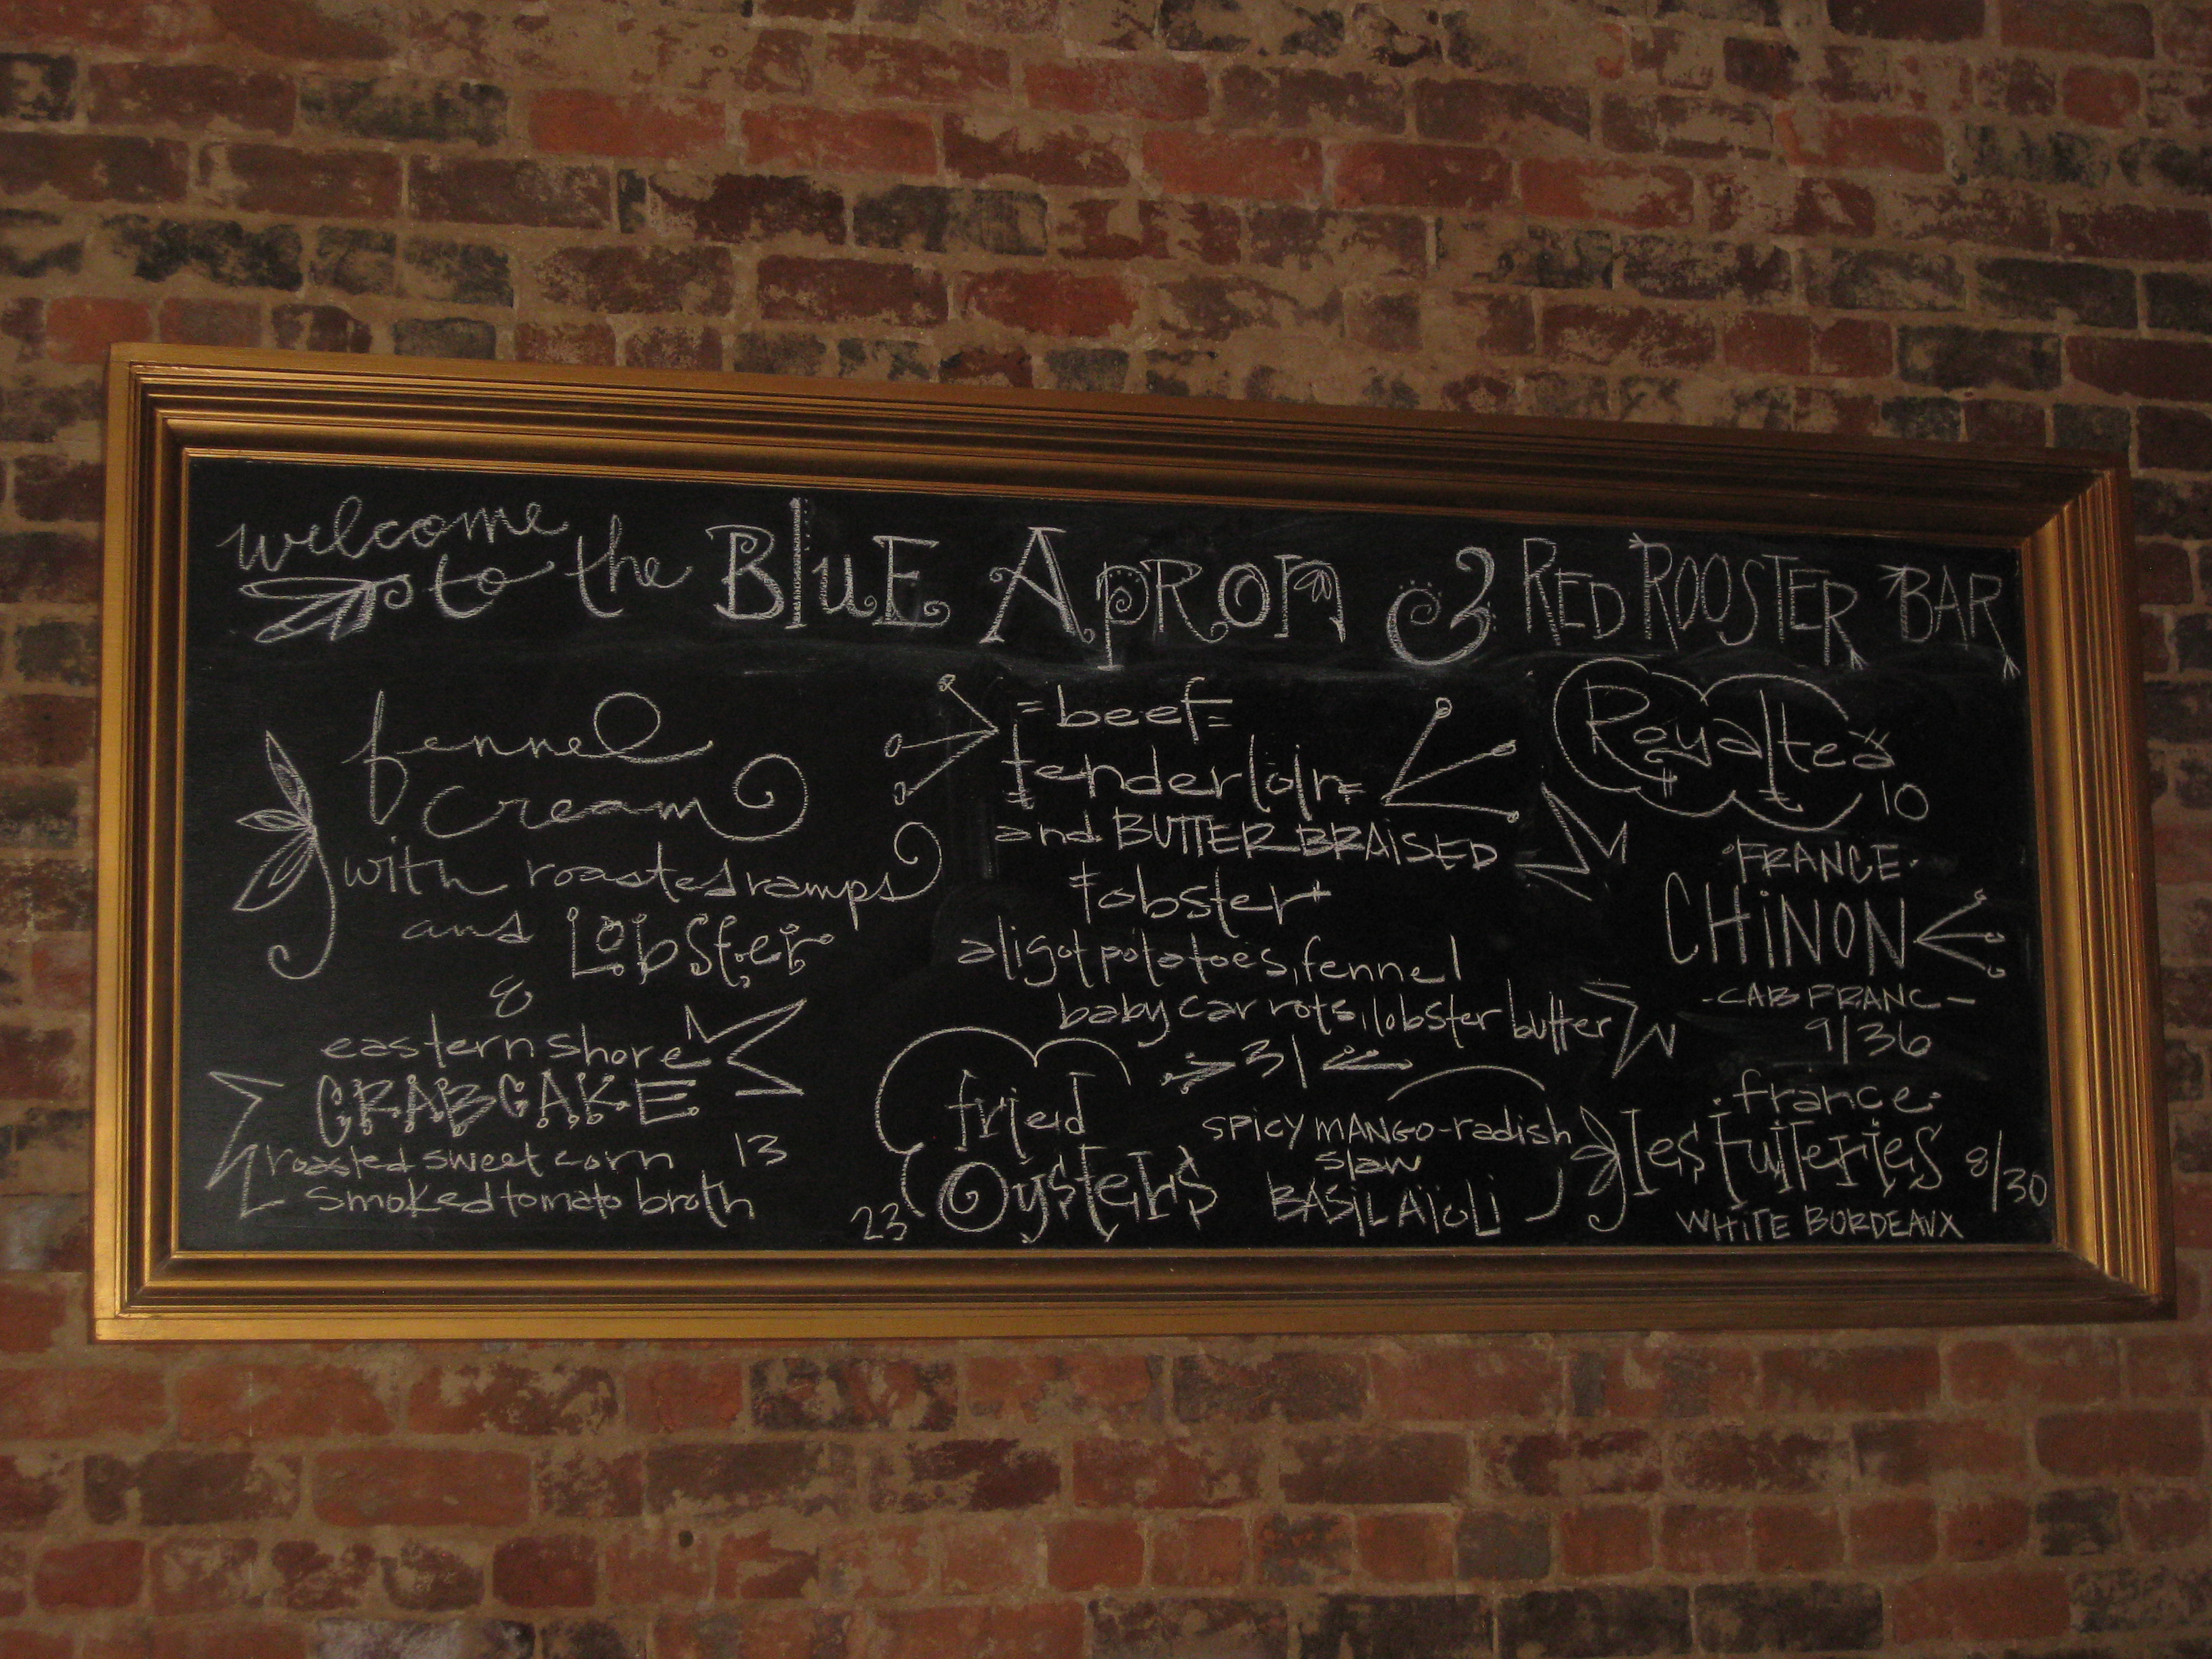 welcome
to the BluE Apron & RED ROOSTER BAR
fennel
cream
with roasted ramps
and Lobster
&
eastern shore
CRABCAKE
roasted sweet corn 13
smoked tomato broth
beef
tenderloin
and BUTTER BRAISED
lobster
aligot potatoes, fennel
baby carrots, lobster butter
31
fried
Oysters
23
SPICY MANGO-radish
slaw
BASIL AïOLi
Royaltea
10
FRANCE
CHiNON
-CAB FRANC-
9/36
france
les Tuileries 8/30
WHITE BORDEAUX